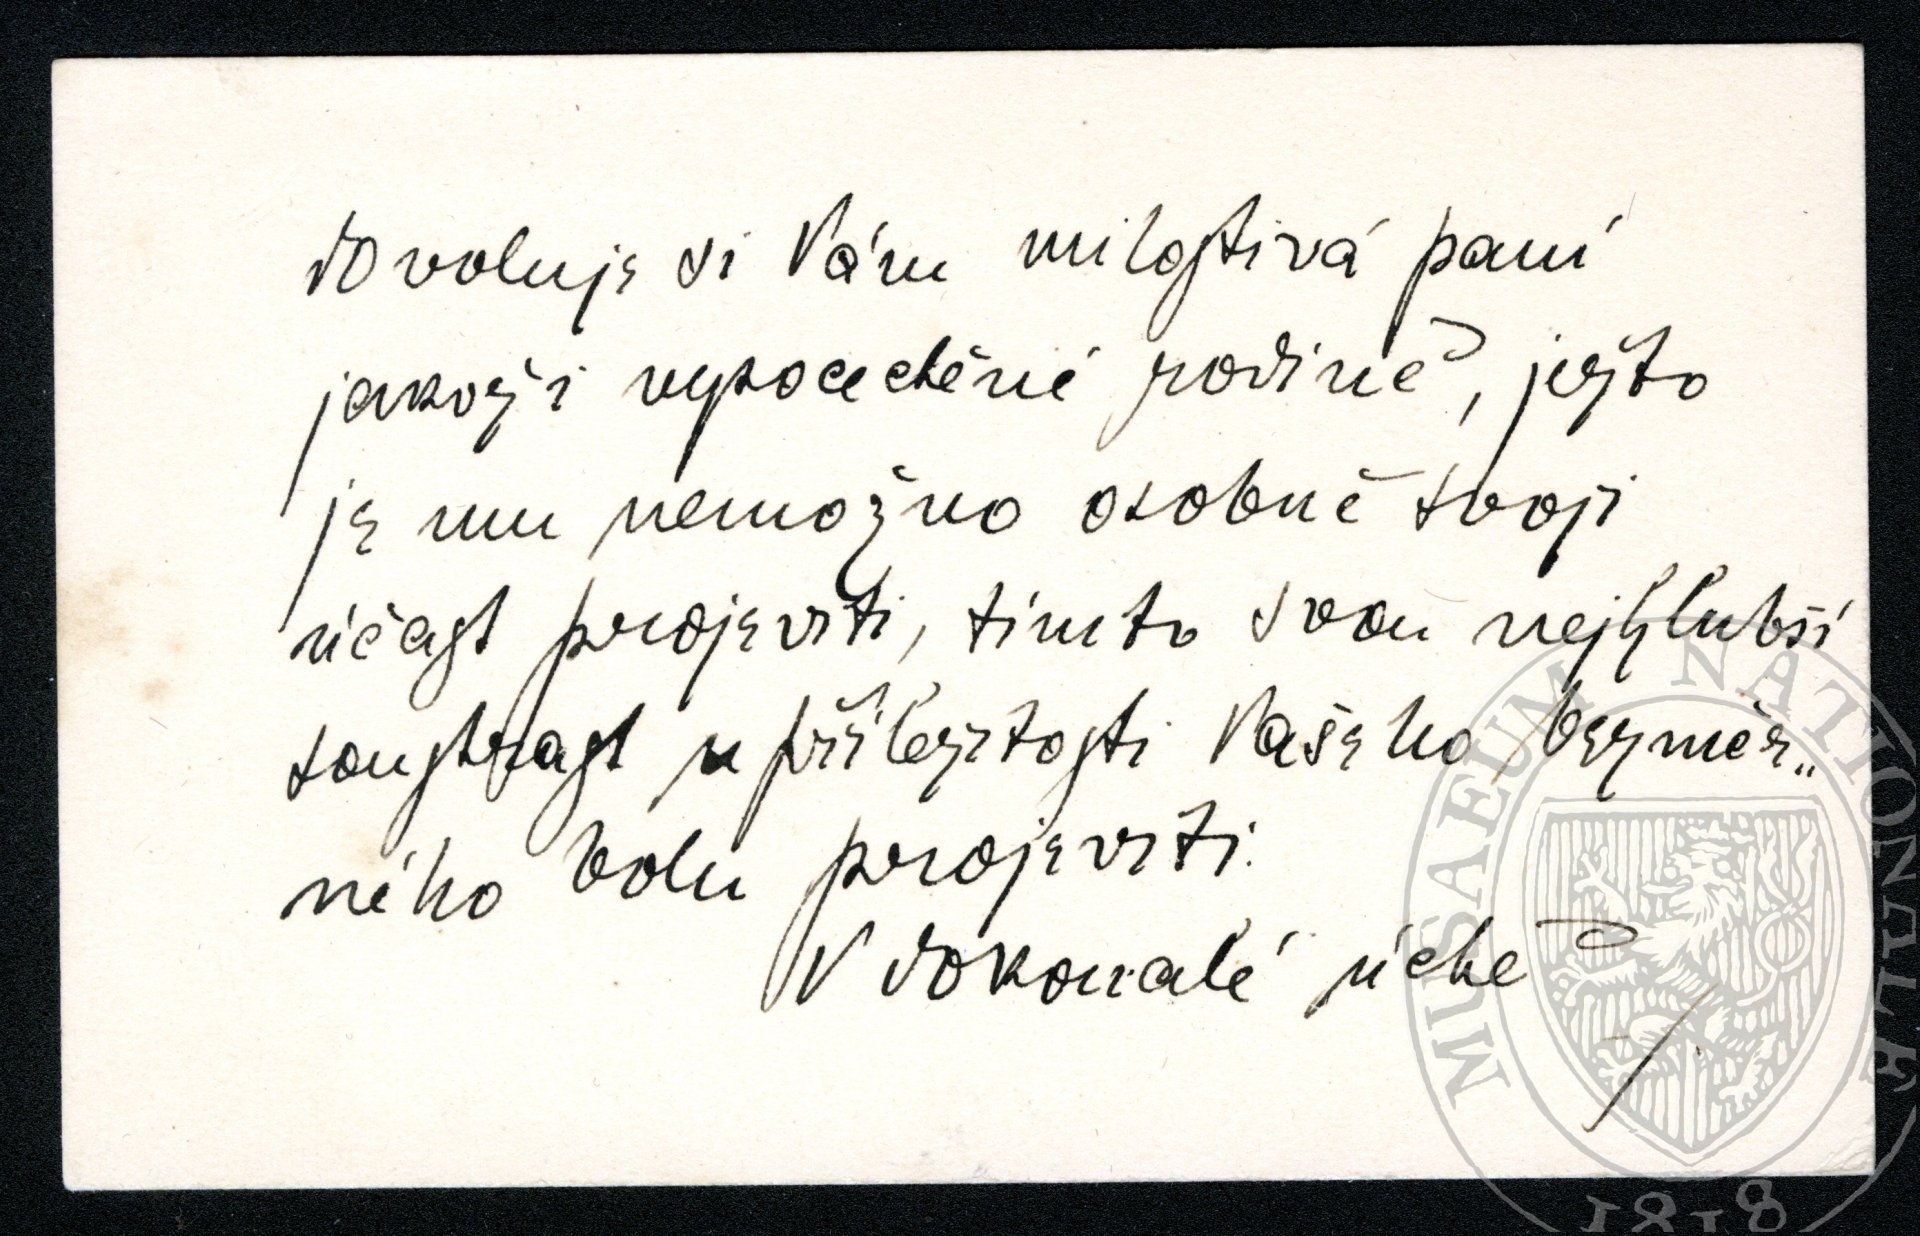 dovoluje si Vám milostivá paní
jakož i vysocectěné rodině, ježto
je mu nemožno osobně svoji
účast projeviti, tímto svou nejhlubší
soustrast u příležitosti Vašeho bezměr„
ného bolu projeviti.
V dokonalé úctě
MUSAEUM NATIONALE
1818